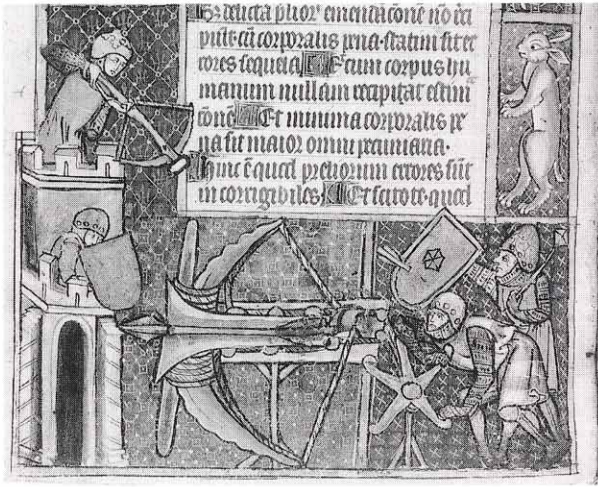 delicta plior' emendacōne nō reci
piūt. cū corporalis pena statim sit er
rores sequela Et cum corpus hu
manum nullam recipiat estim
cōne Et minima corporalis pe
na sit maior omni pecuniaria.
hinc ē quod preliorum errores sūt
in corrigibiles Et scitote quod